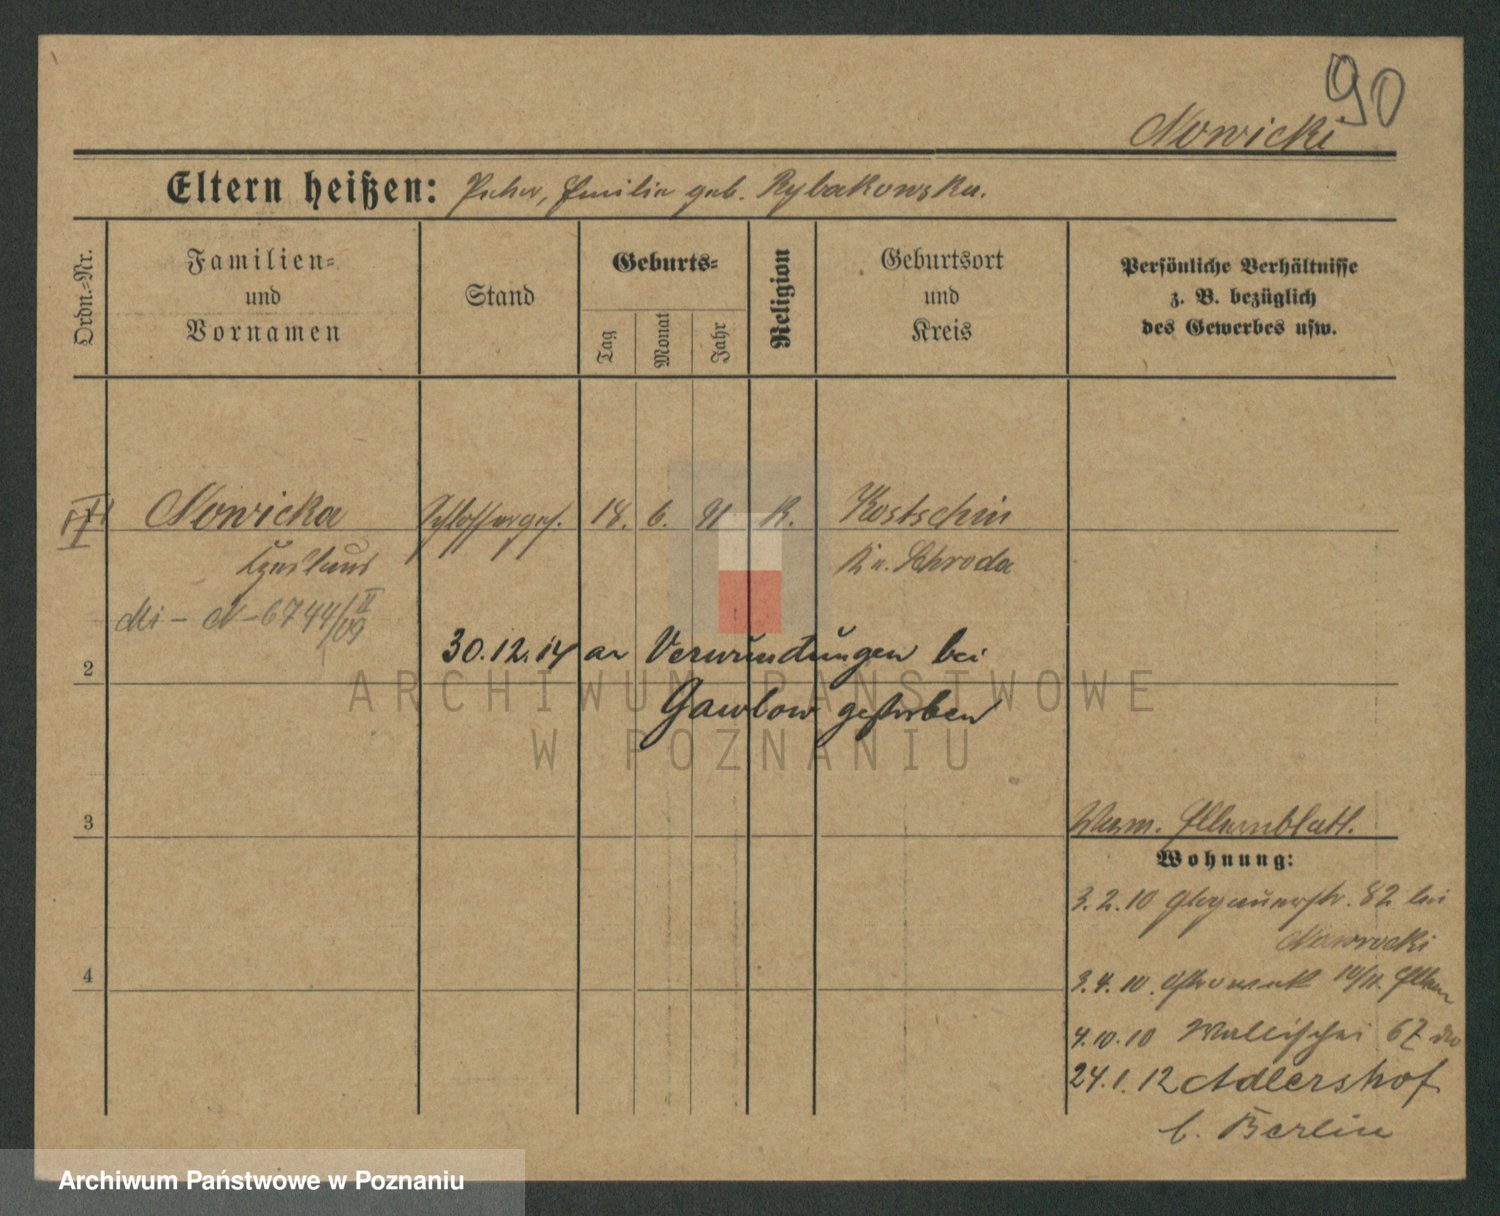 90
Nowicki
Eltern heißen: Peter, Emilia geb. Rybakowska.
Ordn.-Nr.
Familien-
und
Vornamen
Stand
Geburts-
Tag
Monat
Jahr
Religion
Geburtsort
und
Kreis
Persönliche Verhältnisse
z. B. bezüglich
des Gewerbes usw.
Nowicka Schlosserges. 18. 6. 91 K. Kostschin
Kr. Schroda
Mi - N - 6744/II 09
2
30.12.14 an Verwundungen bei
Gawlow gestorben
3
Verm. Elternblatt.
Wohnung:
3.2.10 Glogauerstr. 82 bei
Nawrocki
4
3.4.10. Ostrowek 10/11. Eltern
4.10.10 Wallischei 67
24.1.12 Adlershof
b. Berlin
ARCHIWUM PAŃSTWOWE
W POZNANIU
Archiwum Państwowe w Poznaniu